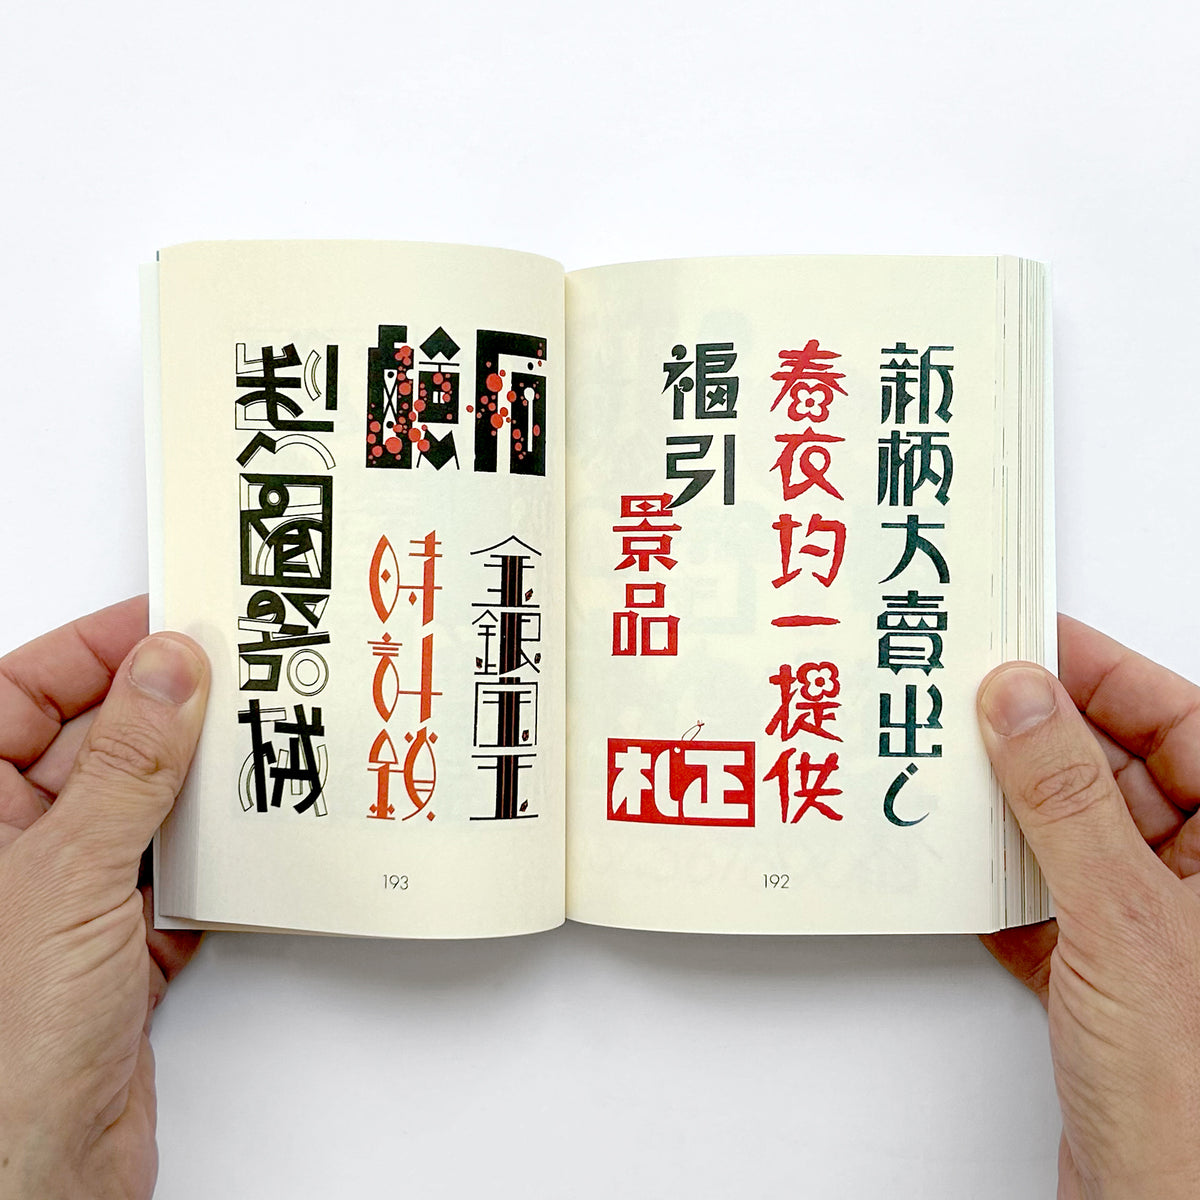 新柄大賣出し
春衣均一提供
福引
景品
正札
192
金銀宝玉
時計鎖
製圖器械
193